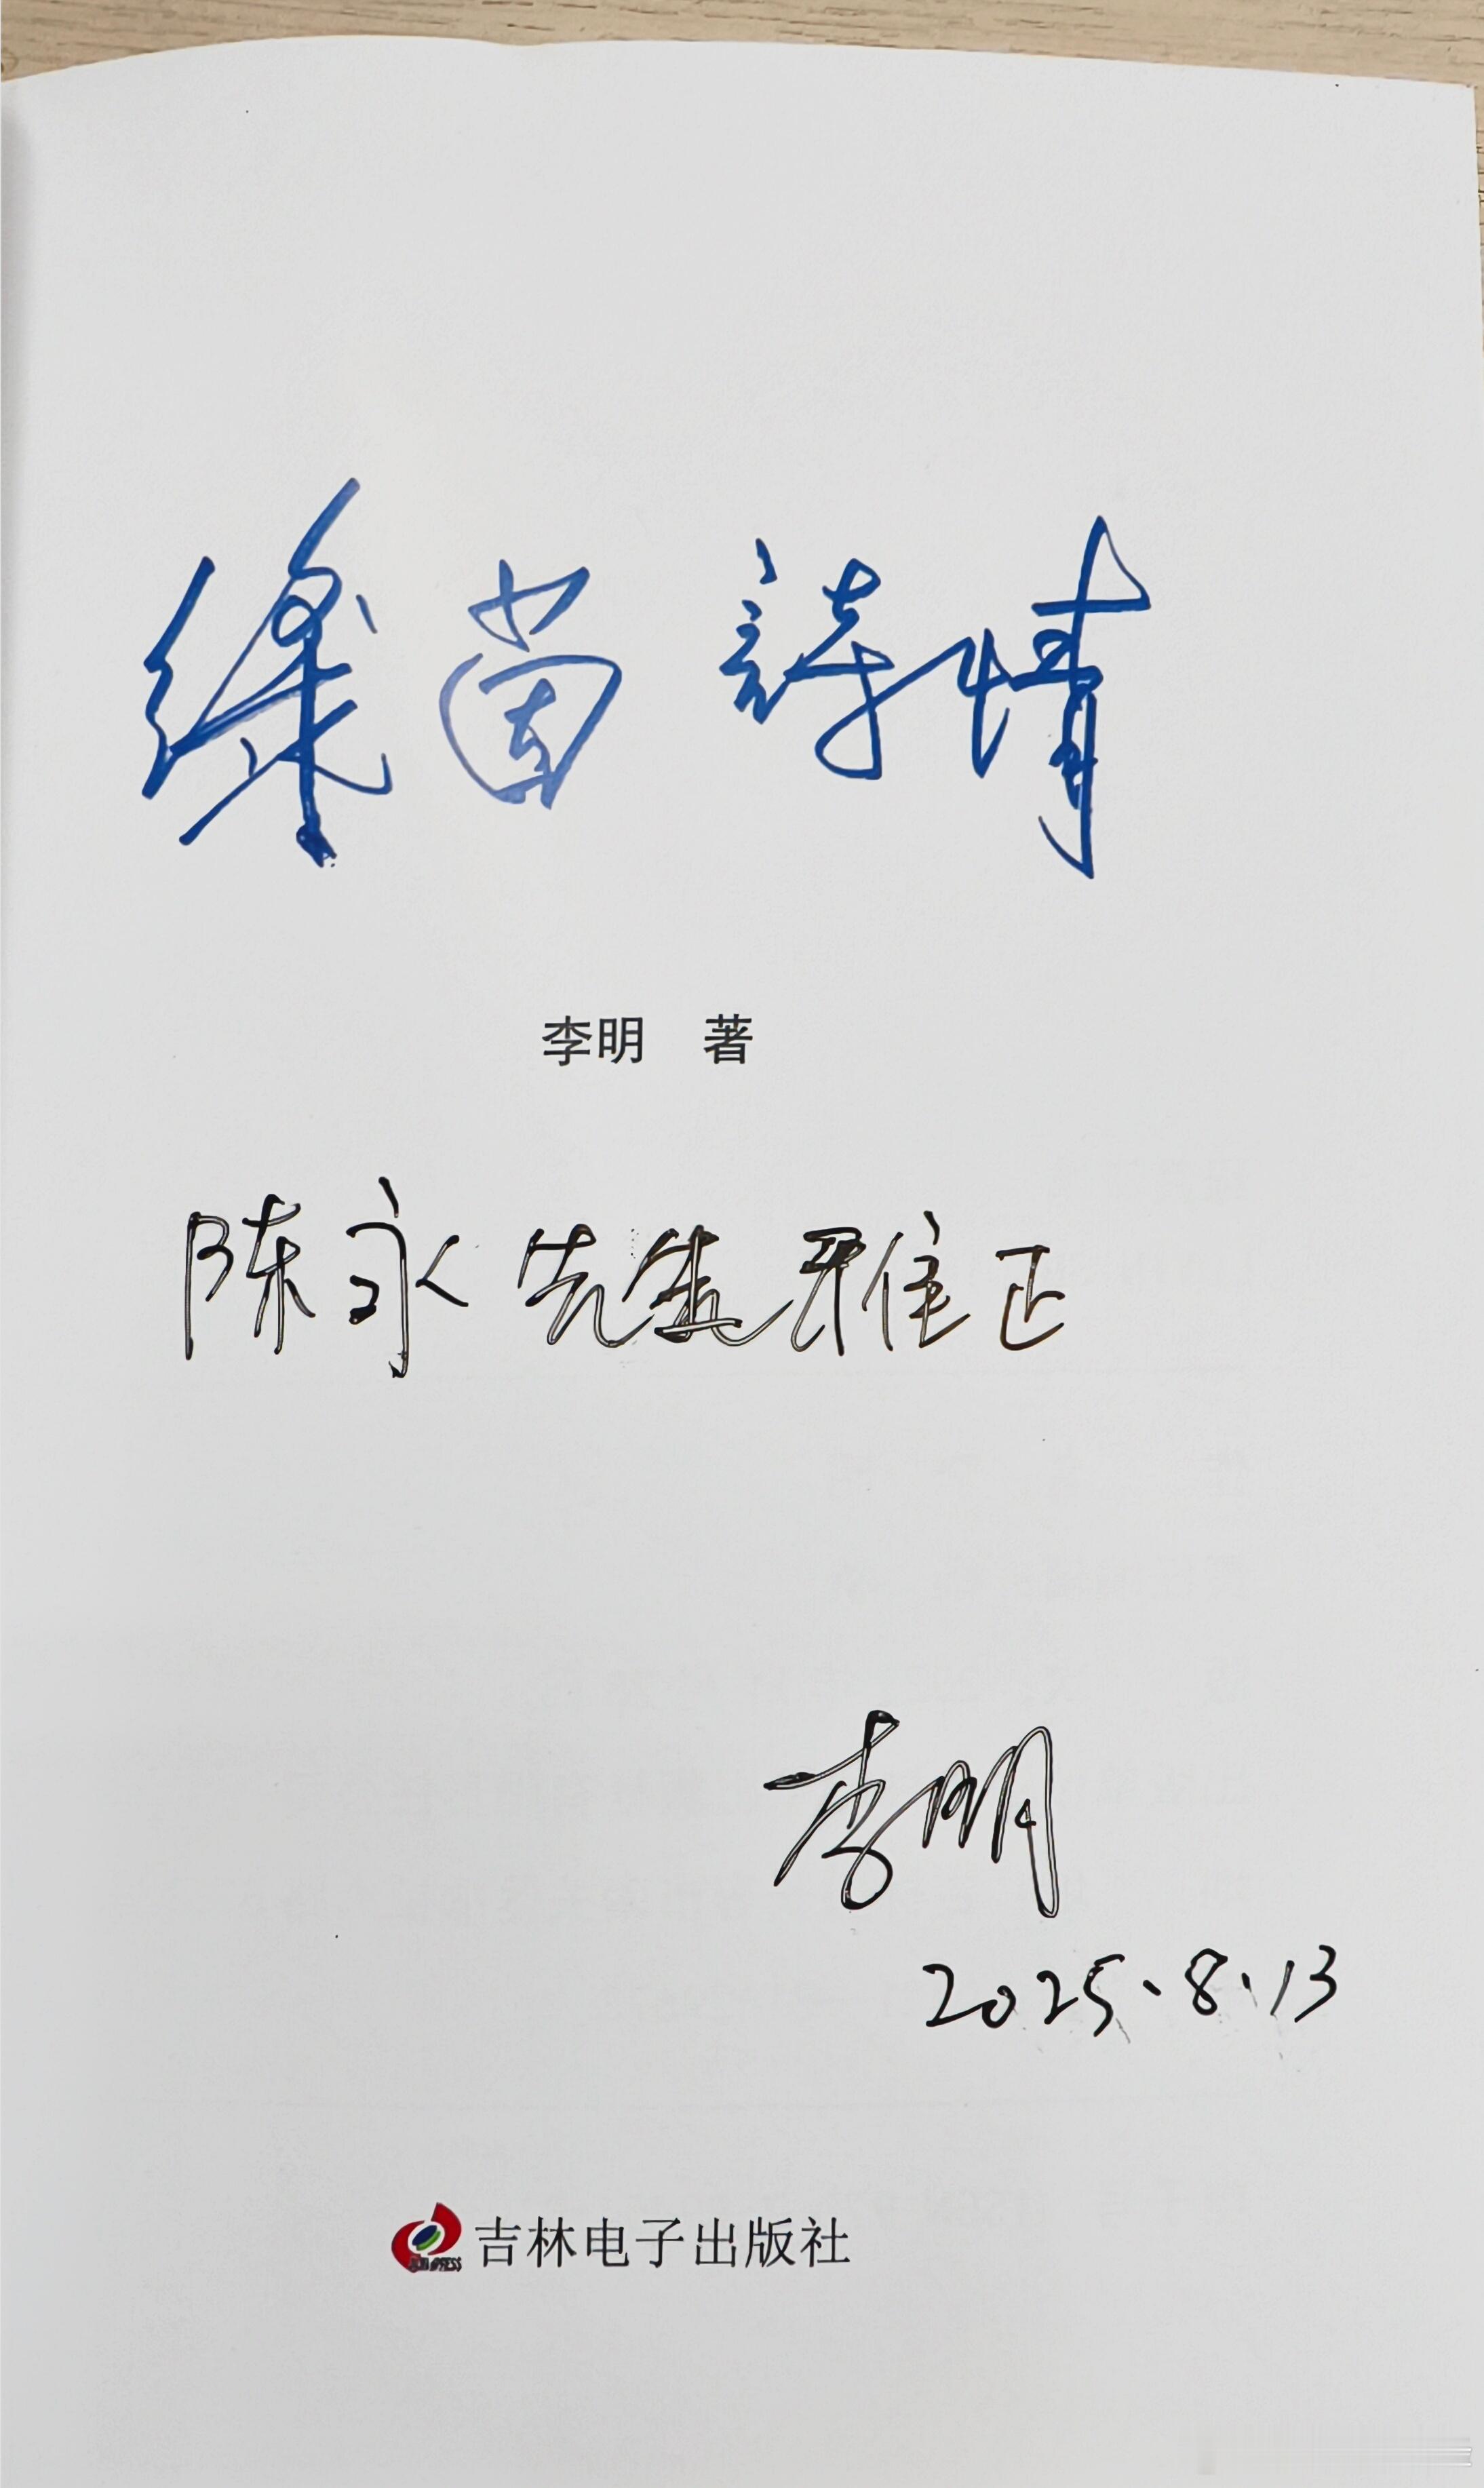 绿茵詩情
李明 著
陈永先生雅正
李明
2025.8.13
吉林电子出版社